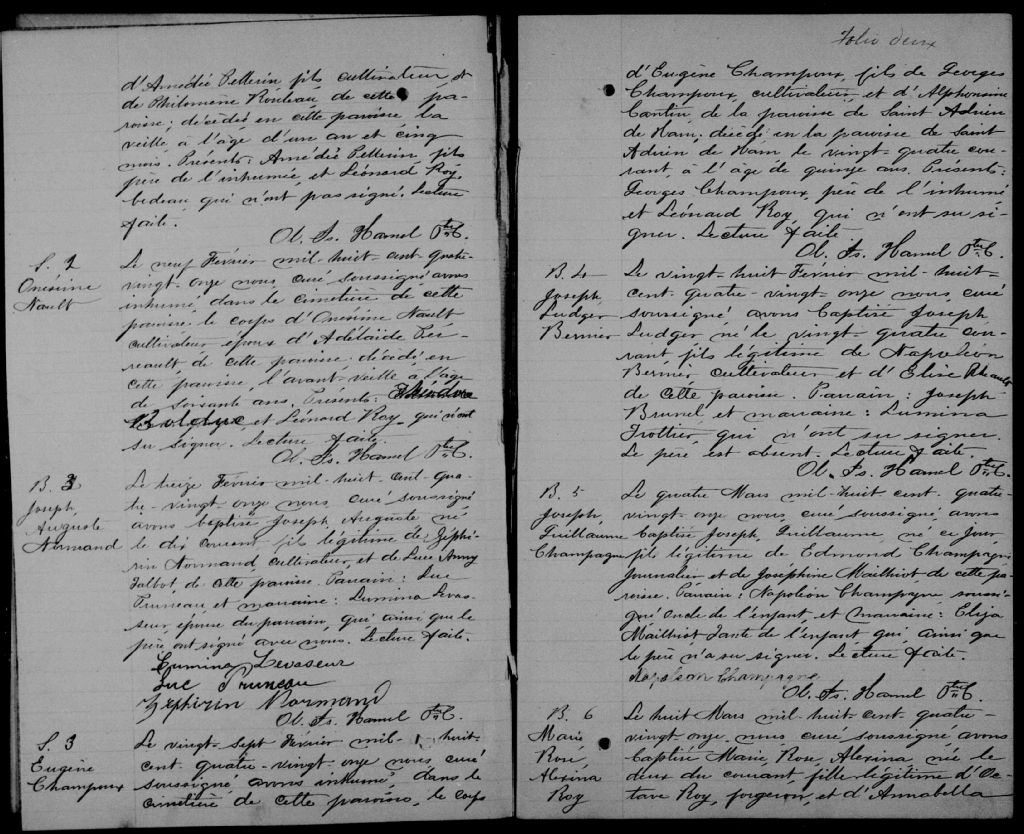 d'Amédée Pellerin fils cultivateur et
de Philomène Rouleau de cette pa-
roisse; décédée en cette paroisse la
veille, à l'âge d'une an et cinq
mois. Présents: Amédée Pellerin, fils
père de l'inhumée, et Léonard Roy,
bedeau qui n'ont pas signé. Lecture
faite.
Ol. Is. Hamel Ptre C.
S. 2
Onésime
Nault
Le neuf Février mil-huit-cent-quatre-
vingt-onze nous, curé soussigné avons
inhumé, dans le cimetière de cette
paroisse le corps d'Onésime Nault
cultivateur époux d'Adélaïde
de cette paroisse décédé en
cette paroisse, l'avant-veille à l'âge
de soixante ans. Présents:
et Léonard Roy qui n'ont
su signer. Lecture faite.
Ol. Is. Hamel Ptre C.
B. 3
Joseph,
Auguste
Normand
Le treize Février mil-huit-cent-qua-
tre-vingt-onze nous, curé soussigné
avons baptisé Joseph Auguste né
le dix courant, fils légitime de Zéphi-
rin Normand, cultivateur, et de Luce Anny
Talbot, de cette paroisse. Parrain: Luc
Pruneau, et marraine: Lumina Levas-
seur, épouse du parrain, qui ainsi que le
père, ont signé avec nous. Lecture faite.
Lumina Levaseur
Luc Pruneau
Zephirin Normand
Ol. Is. Hamel Ptre C.
S. 3
Eugène
Champoux
Le vingt-sept Février mil-huit-
cent-quatre-vingt-onze nous, curé
soussigné, avons inhumé, dans le
cimetière de cette paroisse, le corps
Folio deux
d'Eugène Champoux, fils de Georges
Champoux, cultivateur, et d'Alphonsine
Cantin, de la paroisse de Saint Adrien
de Ham, décédé en la paroisse de Saint
Adrien de Ham le vingt-quatre cou-
rant, à l'âge de quinze ans. Présents:
Georges Champoux, père de l'inhumé
et Léonard Roy, qui n'ont su si-
gner. Lecture faite
Ol. Is. Hamel Ptre C.
B. 4
Joseph,
Ludger
Bernier
Le vingt-huit Fevrier mil-huit-
cent-quatre-vingt-onze nous, curé
soussigné avons baptisé Joseph
Ludger né le vingt-quatre cou-
rant fils légitime de Napoléon
Bernier cultivateur et d'Elise
de cette paroisse. Parrain: Joseph
Brunel et marraine: Lumina
Trottier, qui n'ont su signer.
Le père est absent. Lecture faite.
Ol. Is. Hamel Ptre C.
B. 5
Joseph,
Guillaume
Champagne
Le quatre Mars mil-huit-cent-quatre-
vingt-onze nous, curé soussigné avons
baptisé Joseph, Guillaume, né ce jour,
fils légitime de Edmond Champagne
Journalier et de Joséphine Mailhiot, de cette pa-
roisse. Parrain: Napoléon Champagne, soussi-
gné oncle de l'enfant, et marraine: Eliza
Mailhiot tante de l'enfant qui ainsi que
le père n'a su signer. Lecture faite.
Napoléon Champagne
Ol. Is. Hamel Ptre C.
B. 6
Marie
Rose,
Alexina
Roy
Le huit Mars mil-huit-cent-quatre-
vingt-onze, nous curé soussigné avons
baptisé Marie, Rose, Alexina née le
deux du courant, fille légitime d'Oc-
tave Roy, forgeron, et d'Annabella